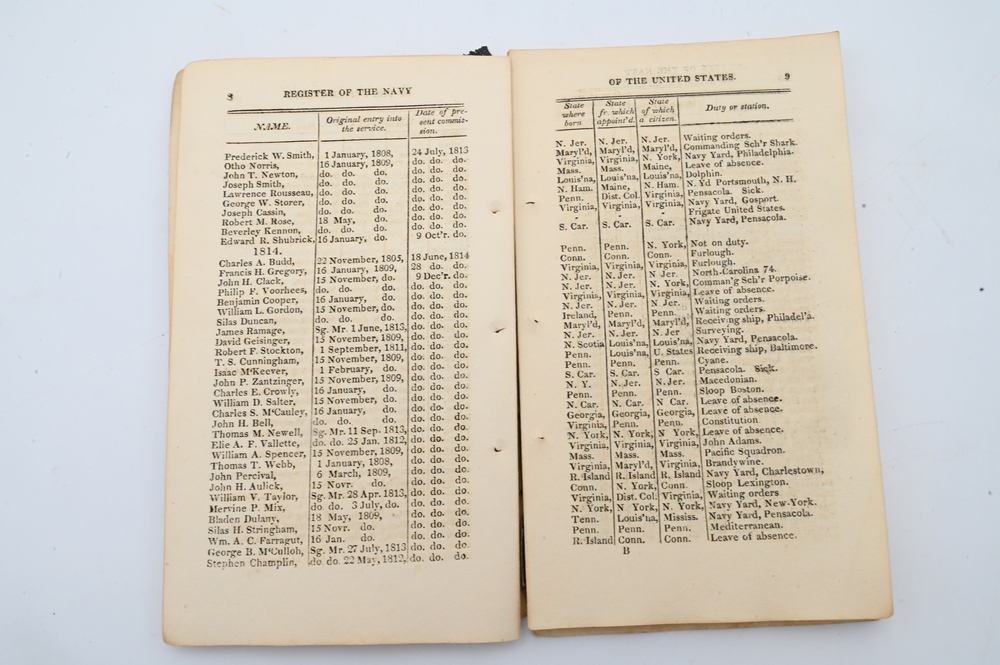 8 REGISTER OF THE NAVY
NAME. Original entry into the service. Date of present commission.
Frederick W. Smith, 1 January, 1808, 24 July, 1813
Otho Norris, 16 January, 1809, do. do. do.
John T. Newton, do. do. do. do. do. do.
Joseph Smith, do. do. do. do. do. do.
Lawrence Rousseau, do. do. do. do. do. do.
George W. Storer, do. do. do. do. do. do.
Joseph Cassin, do. do. do. do. do. do.
Robert M. Rose, 18 May, do. do. do. do.
Beverley Kennon, do. do. do. do. do. do.
Edward R. Shubrick, 16 January, do. 9 Oct'r. do.
1814.
Charles A. Budd, 22 November, 1805, 18 June, 1814
Francis H. Gregory, 16 January, 1809, 28 do. do.
John H. Clack, 15 November, do. 9 Dec'r. do.
Philip F. Voorhees, do. do. do. do. do. do.
Benjamin Cooper, 16 January, do. do. do. do.
William L. Gordon, 15 November, do. do. do. do.
Silas Duncan, do. do. do. do. do. do.
James Ramage, Sg. Mr. 1 June, 1813, do. do. do.
David Geisinger, 15 November, 1809, do. do. do.
Robert F. Stockton, 1 September, 1811, do. do. do.
T. S. Cunningham, 15 November, 1809, do. do. do.
Isaac M'Keever, 1 February, do. do. do. do.
John P. Zantzinger, 15 November, 1809, do. do. do.
Charles E. Crowly, 16 January, do. do. do. do.
William D. Salter, 15 November, do. do. do. do.
Charles S. M'Cauley, 16 January, do. do. do. do.
John H. Bell, do. do. do. do. do. do.
Thomas M. Newell, Sg. Mr. 11 Sep. 1813, do. do. do.
Elie A. F. Vallette, do. do. 25 Jan. 1812, do. do. do.
William A. Spencer, 15 November, 1809, do. do. do.
Thomas T. Webb, 1 January, 1808, do. do. do.
John Percival, 6 March, 1809, do. do. do.
John H. Aulick, 15 Novr. do. do. do. do.
William V. Taylor, Sg. Mr. 28 Apr. 1813, do. do. do.
Mervine P. Mix, do do. 3 July, do. do. do. do.
Bladen Dulany, 18 May, 1809, do. do. do.
Silas H. Stringham, 15 Novr. do. do. do. do.
Wm. A. C. Farragut, 16 Jan. do. do. do. do.
George B. M'Culloh, Sg. Mr. 27 July, 1813 do. do. do.
Stephen Champlin, do do. 22 May, 1812, do. do. do.
OF THE UNITED STATES. 9
State where born State fr. which appoint'd. State of which a citizen. Duty or station.
N. Jer. N. Jer. N. Jer. Waiting orders.
Maryl'd, Maryl'd, Maryl'd, Commanding Sch'r Shark.
Virginia, Virginia, N. York, Navy Yard, Philadelphia.
Mass. Mass. Maine, Leave of absence.
Louis'na, Louis'na, Louis'na, Dolphin.
N. Ham. Maine, N. Ham. N. Yd Portsmouth, N. H.
Penn. Dist. Col. Virginia, Pensacola. Sick.
Virginia, Virginia, Virginia, Navy Yard, Gosport.
- - - Frigate United States.
S. Car. S. Car. S. Car. Navy Yard, Pensacola.
Penn. Penn. N. York, Not on duty.
Conn. Conn. Conn. Furlough.
Virginia, Virginia, Virginia, Furlough.
N. Jer. N. Jer. N Jer. North-Carolina 74.
N. Jer. N. Jer. N. York, Comman'g Sch'r Porpoise.
Virginia, Virginia, Virginia, Leave of absence.
N. Jer. N. Jer. N. Jer. Waiting orders.
Ireland, Penn. Penn. Waiting orders.
Maryl'd, Maryl'd, Maryl'd, Receiving ship, Philadel'a.
N. Jer. N. Jer. N. Jer Surveying.
N. Scotia Louis'na, Louis'na, Navy Yard, Pensacola.
Penn. Louis'na, U. States Receiving ship, Baltimore.
Penn. Penn. Penn. Cyane.
S. Car. S. Car. S Car. Pensacola. Sick.
N. Y. N. Jer. N. Jer. Macedonian.
Penn. Penn. Penn. Sloop Boston.
N. Car. N. Car. N Car. Leave of absence.
Georgia, Georgia, Georgia, Leave of absence.
Virginia, Penn. Penn. Constitution
N. York, N. York, N York, Leave of absence.
Virginia, Virginia, Virginia, John Adams.
Mass. Mass. Mass. Pacific Squadron.
Virginia, Maryl'd, Virginia, Brandywine.
R. Island R. Island R. Island Navy Yard, Charlestown,
Conn. N. York, Conn. Sloop Lexington.
Virginia, Dist. Col. Virginia, Waiting orders
N. York, N York, N York, Navy Yard, New-York.
Tenn. Louis'na, Mississ. Navy Yard, Pensacola.
Penn. Penn. Penn. Mediterranean.
R. Island Conn. Conn. Leave of absence.
B